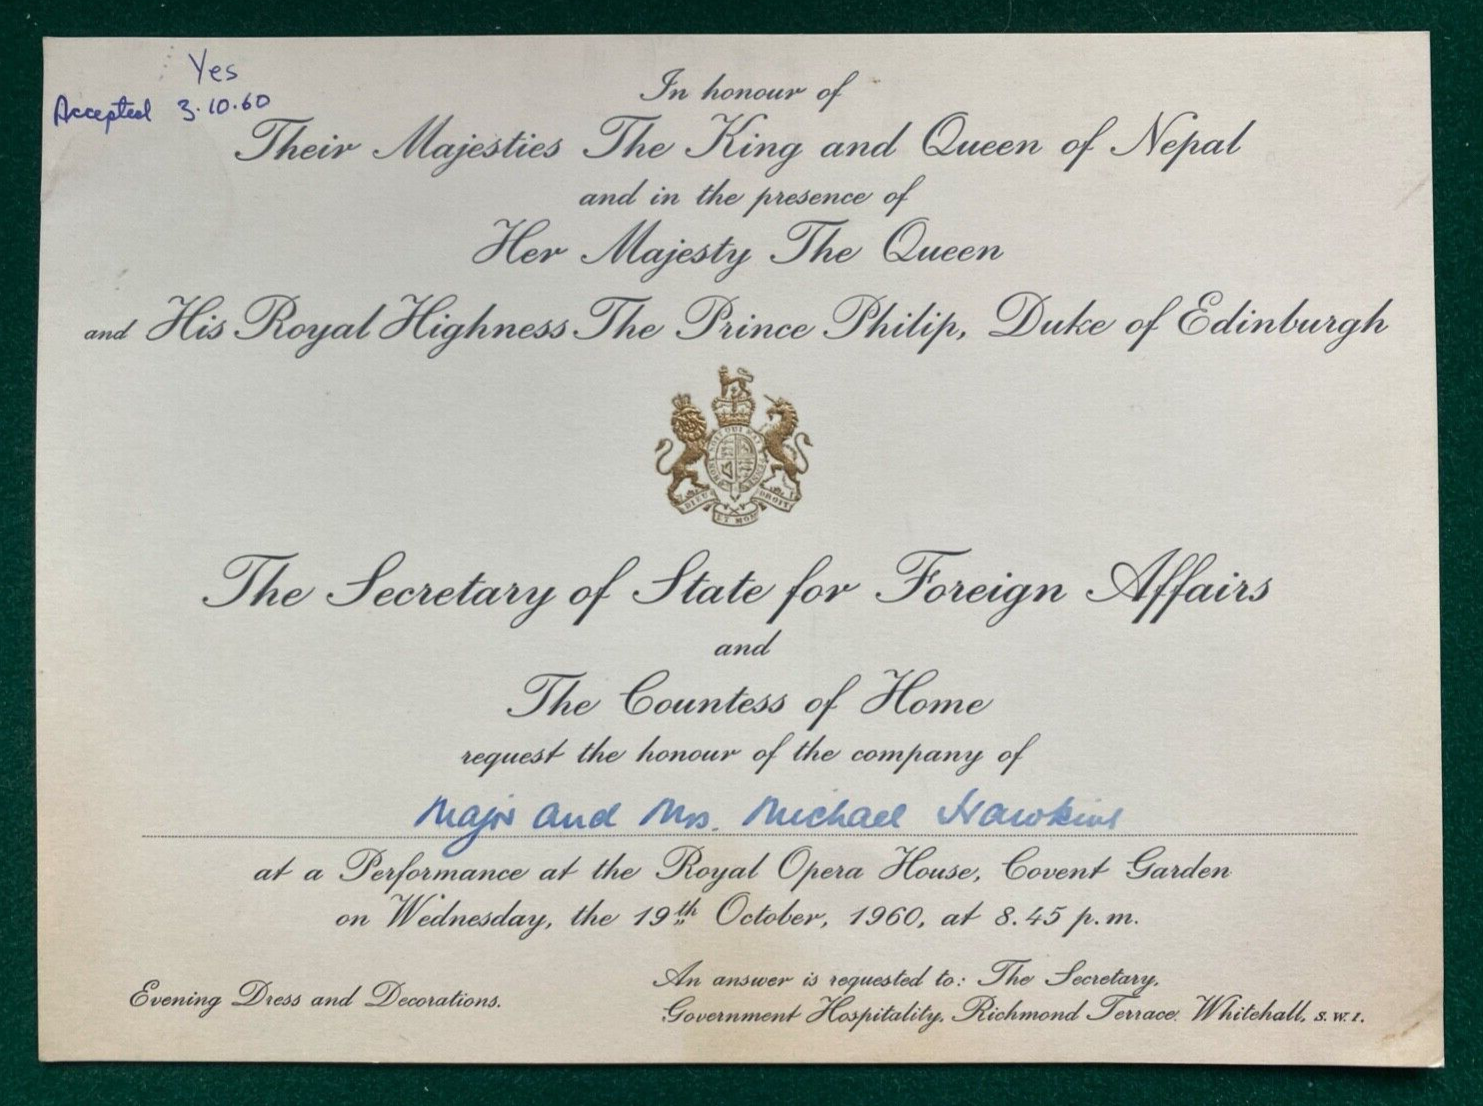 Yes
Accepted 3.10.60
In honour of
Their Majesties The King and Queen of Nepal
and in the presence of
Her Majesty The Queen
and His Royal Highness The Prince Philip, Duke of Edinburgh
DIEU ET MON DROIT
The Secretary of State for Foreign Affairs
and
The Countess of Home
request the honour of the company of
Major and Mrs. Michael Hawkins
at a Performance at the Royal Opera House, Covent Garden
on Wednesday, the 19th October, 1960, at 8.45 p.m.
Evening Dress and Decorations.
An answer is requested to: The Secretary,
Government Hospitality, Richmond Terrace. Whitehall, S.W.1.